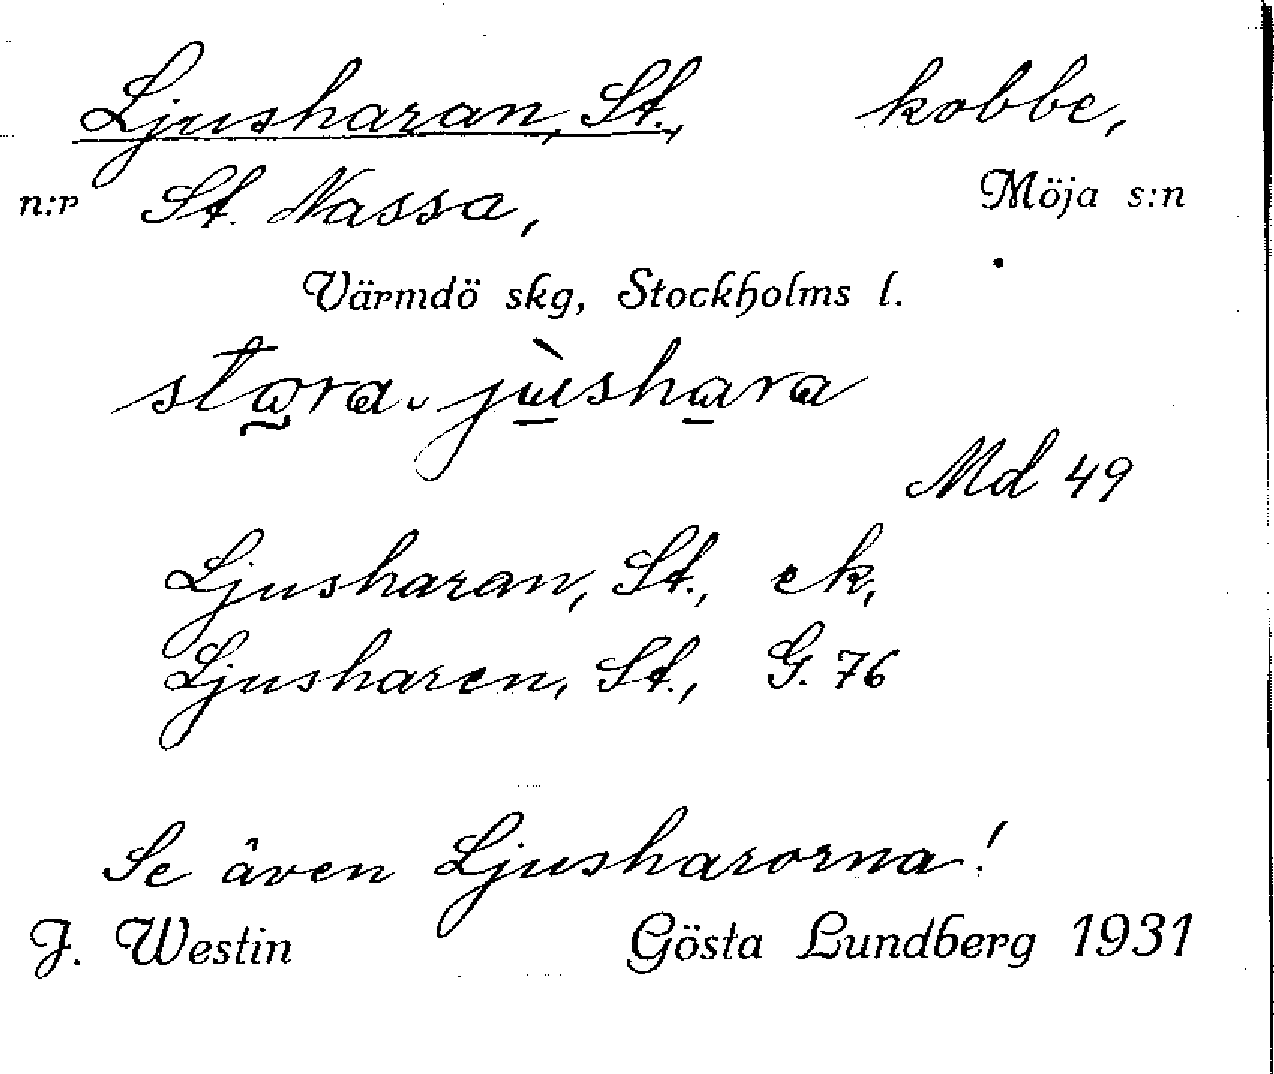 Ljusharan, St., kobbe,
n:r St. Nassa, Möja s:n
Värmdö skg, Stockholms l.
stora jùshara
Md 49
Ljusharan, St., ek,
Ljusharen, St., G. 76
Se även Ljusharorna!
J. Westin Gösta Lundberg 1931